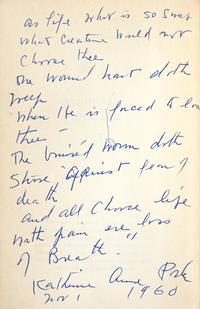 as life what is so sweet
what creature would not
choose thee
The wounded hart doth
weep
when He is forced to
thee —
The bruised worm doth
strive against fear of
death
and all choose life
with pain ere loss
of Breath.
Katherine Anne
Nov 1 1960